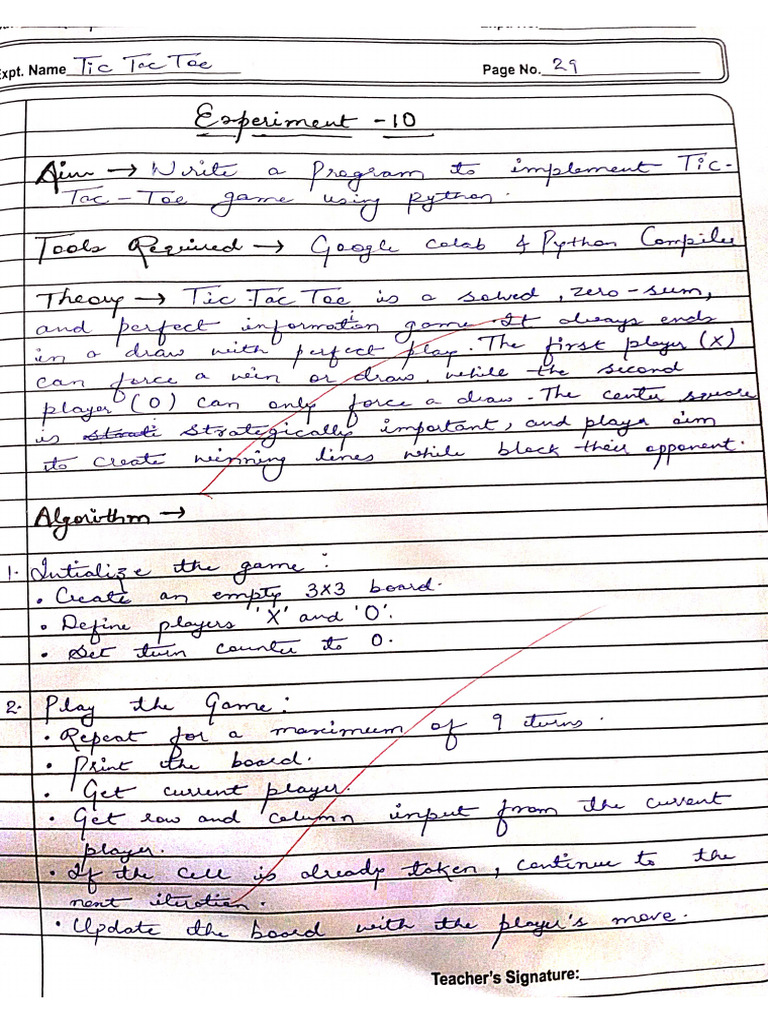 Expt. Name Tic Tac Toe
Page No. 29
Experiment - 10
Aim → Write a Program to implement Tic-
Tac-Toe game using python.
Tools Required → Google colab & Python Compiler
Theory → Tic Tac Toe is a solved, zero-sum,
and perfect information game. It always ends
in a draw with perfect play. The first player (X)
can force a win or draw, while the second
player (O) can only force a draw. The center square
is strategically important, and player aim
to create winning lines while block their opponent.
Algorithm →
1. Intialize the game:
• Create an empty 3x3 board.
• Define players 'X' and 'O'.
• Set turn counter to 0.
2. Play the Game:
• Repeat for a maximum of 9 turns.
• Print the board.
• Get current player.
• Get row and column input from the current
player.
• If the cell is already taken, continue to the
next itration.
• Update the board with the player's move.
Teacher's Signature: